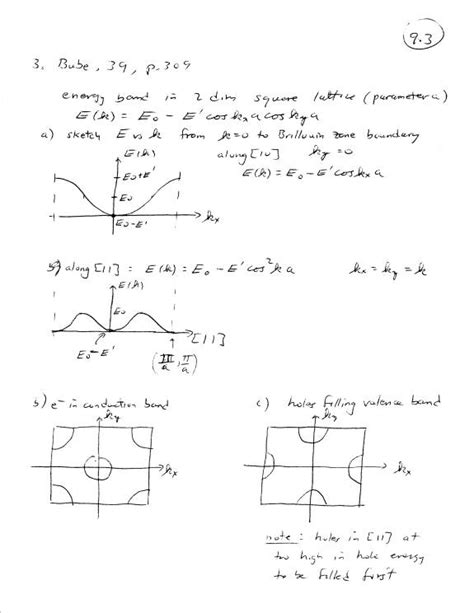 9.3
3. Bube, 39, p.309
energy band in 2 dim square lattice (parameter a)
E(k) = E₀ - E' cos kₓa cos k_y a
a) sketch E vs k from k=0 to Brillouin zone boundary
E(k)
along [10] k_y = 0
E₀+E'
E(k) = E₀ - E' cos kₓa
E₀
kₓ
E₀-E'
along [11] : E(k) = E₀ - E' cos² ka
kₓ = k_y = k
E(k)
E₀
[11]
E₀-E'
(π/a, π/a)
b) e⁻ in conduction band
c) holes filling valence band
k_y
k_y
kₓ
kₓ
note : holes in [11] at
too high in hole energy
to be filled first